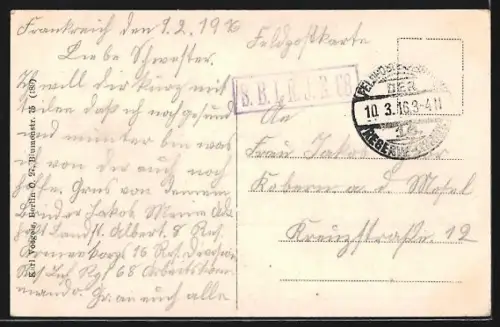 Frankreich den 9.2.1916
Liebe Schwester.
Ich will dir kurz mit
teilen daß ich noch gesund
und munter bin was
ich von dir auch noch
hoffe. Grus von deinem
Bruder Jakob Meine Adr.
Landst. Albert 8 Res.
16 Res. Division
Res. Inf. Rgt 68 Arbeitskom
mando. Gr. an euch alle
Feldpostkarte
S. B. I. R. J. R. 68
An
Frau Jakob
Kobern a. d. Mosel
Kreuzstraße 12
DER
10.3.16.3-4N
16.
RESERVE-DIVISION
Karl Voegels, Berlin O. 27, Blumenstr. 75 (180)